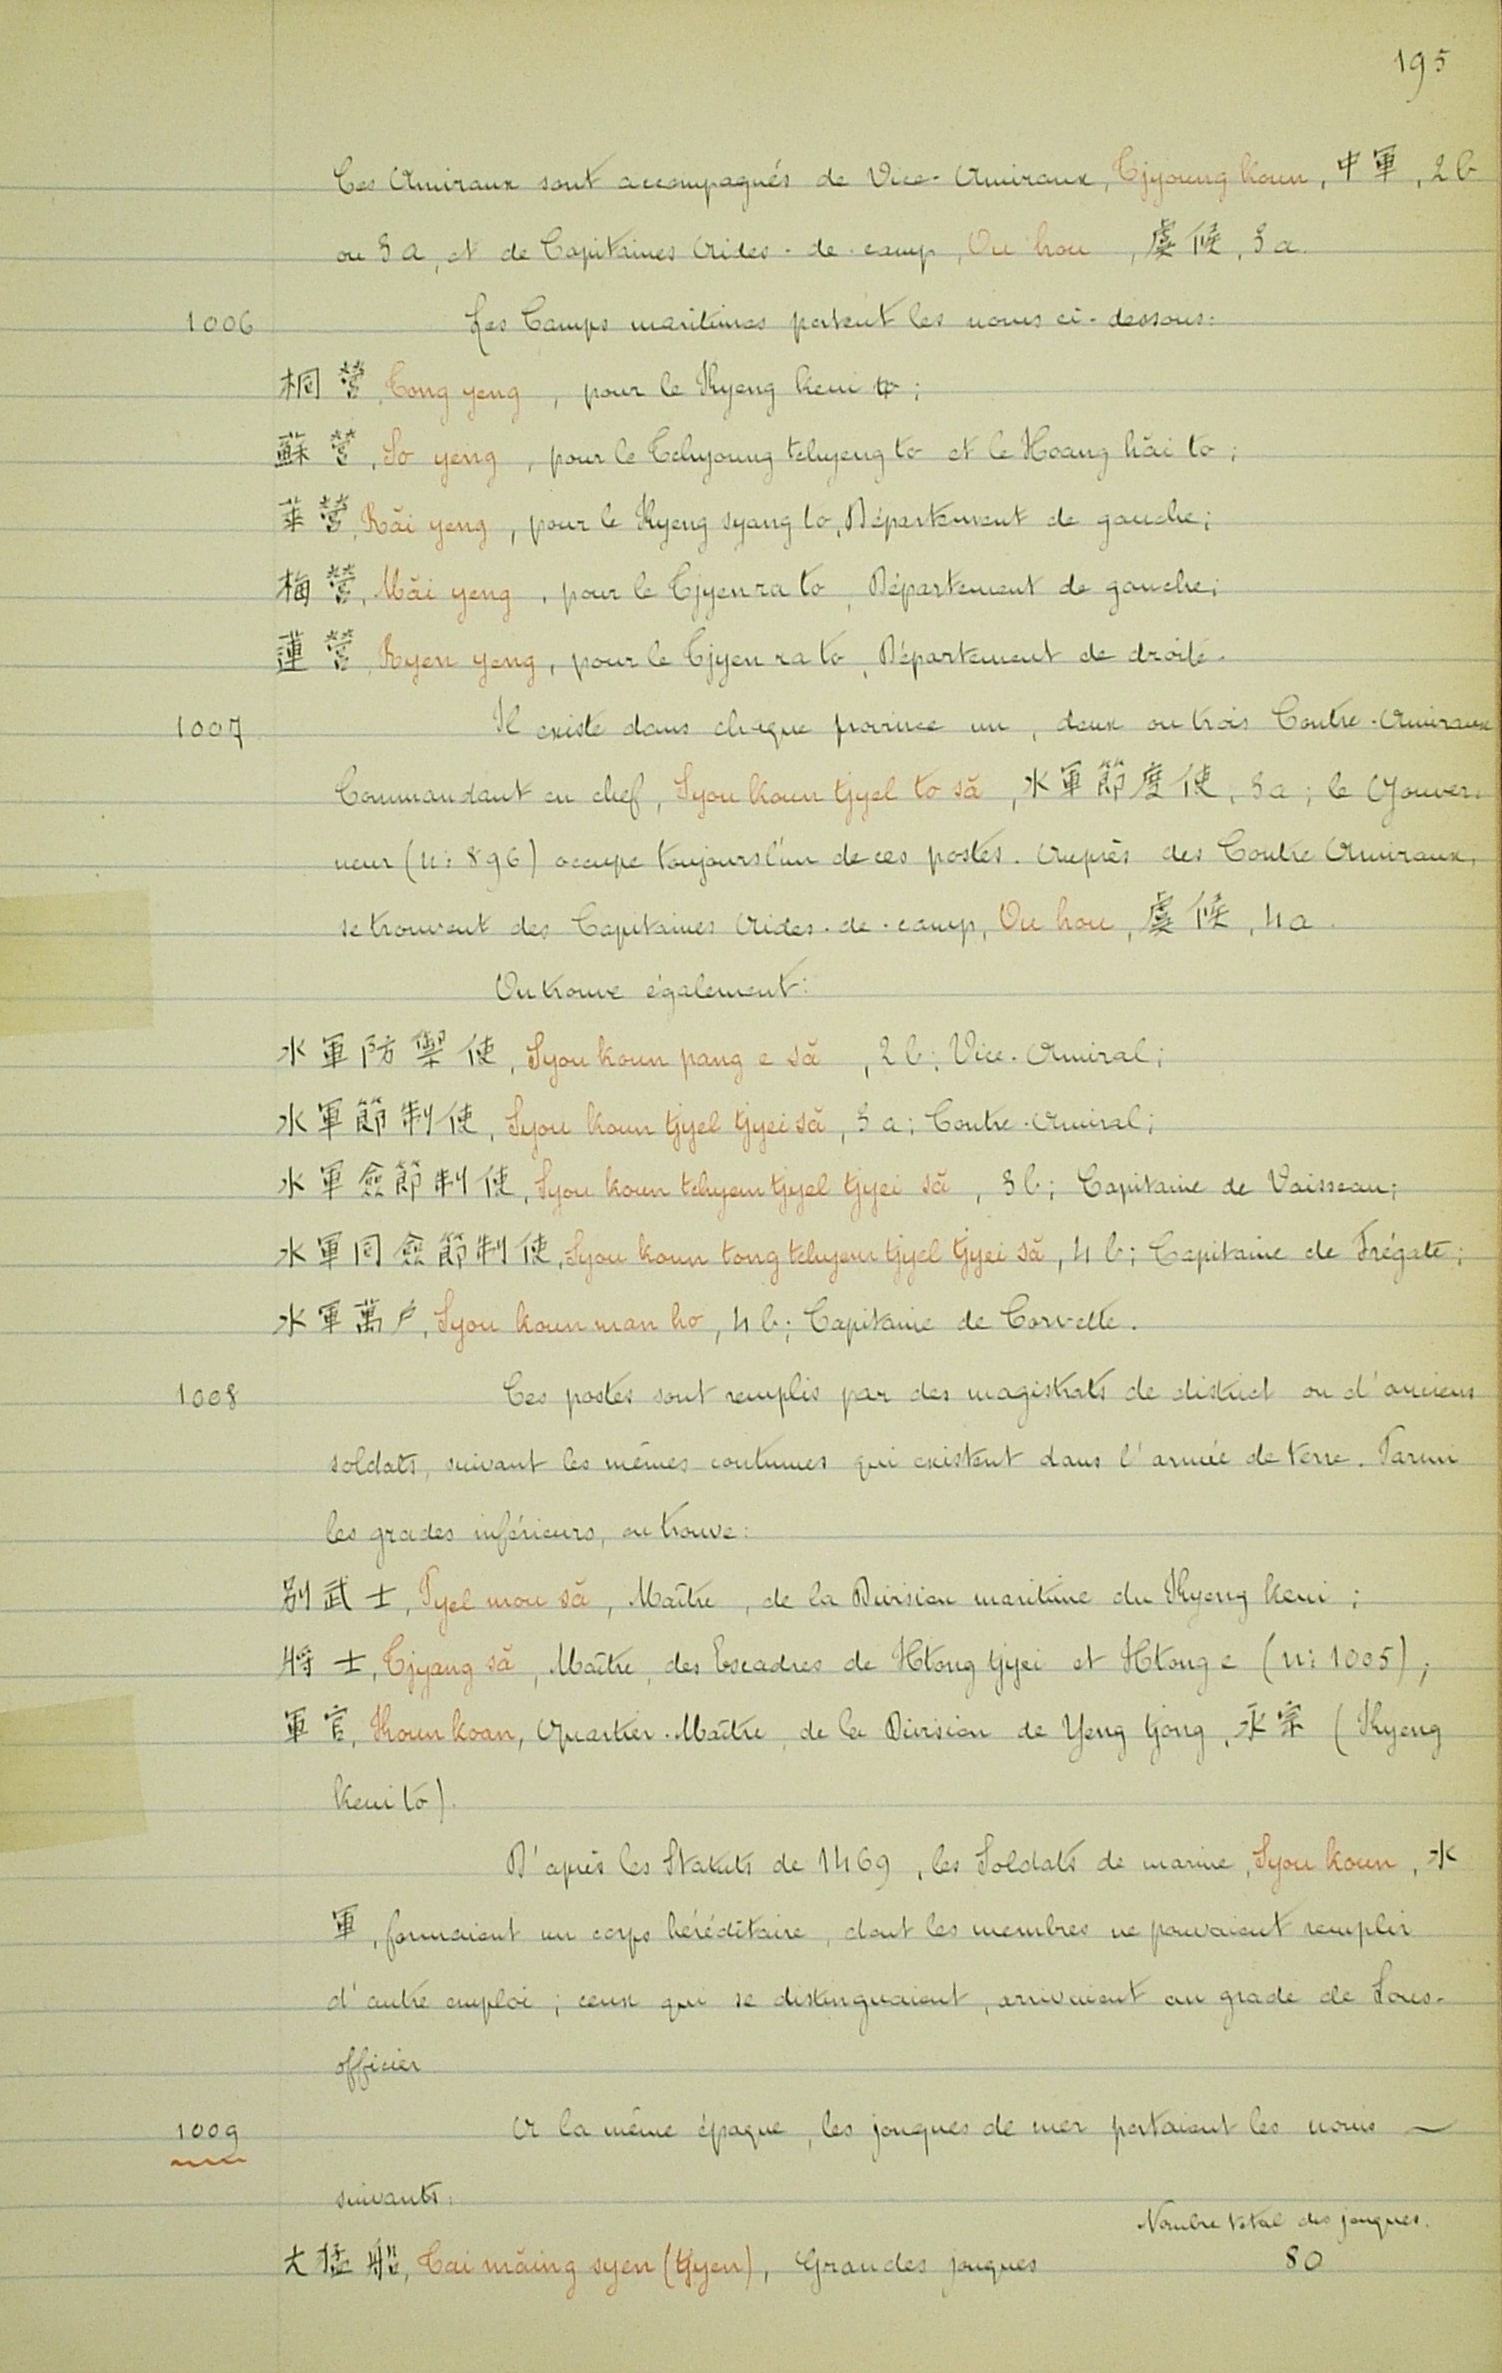 195
Ces Amiraux sont accompagnés de Vice-Amiraux, Tjyoung koun, 中軍, 2b
ou 3a, et de Capitaines Aides-de-camp, Ou hou, 虞候, 3a.
1006 Les Camps maritimes portent les noms ci-dessous:
桐營, Tong yeng, pour le Kyeng keui to;
蘇營, So yeng, pour le Tchyoung tchyeng to et le Hoang hăi to;
萊營, Răi yeng, pour le Kyeng syang to, Département de gauche;
梅營, Măi yeng, pour le Tjyen ra to, Département de gauche;
蓮營, Ryen yeng, pour le Tjyen ra to, Département de droite.
1007 Il existe dans chaque province un, deux ou trois Contre-Amiraux
Commandant en chef, Syou koun tjyel to să, 水軍節度使, 3a; le Gouver-
neur (n: 896) occupe toujours l'un de ces postes. Auprès des Contre Amiraux,
se trouvent des Capitaines Aides-de-camp, Ou hou, 虞候, 4a.
On trouve également:
水軍防禦使, Syou koun pang e să, 2b; Vice-Amiral;
水軍節制使, Syou koun tjyel tjyei să, 3a; Contre-Amiral;
水軍僉節制使, Syou koun tchyem tjyel tjyei să, 3b; Capitaine de Vaisseau;
水軍同僉節制使, Syou koun tong tchyem tjyel tjyei să, 4b; Capitaine de Frégate;
水軍萬戶, Syou koun man ho, 4b; Capitaine de Corvette.
1008 Ces postes sont remplis par des magistrats de district ou d'anciens
soldats, suivant les mêmes coutumes qui existent dans l'armée de terre. Parmi
les grades inférieurs, on trouve:
別武士, Pyel mou să, Maître, de la Division maritime du Kyeng keui;
將士, Tjyang să, Maître, des Escadres de Htong tjyei et Htong e (n: 1005);
軍官, Koun koan, Quartier-Maître, de la Division de Yeng tjong, 永宗 (Kyeng
keui to).
D'après les Statuts de 1469, les Soldats de marine, Syou koun, 水
軍, formaient un corps héréditaire, dont les membres ne pouvaient remplir
d'autre emploi; ceux qui se distinguaient, arrivaient au grade de Sous-
officier
1009 A la même époque, les jonques de mer portaient les noms
suivants:
Nombre total des jonques.
大猛船, Tai măing syen (tjyen), Grandes jonques 80